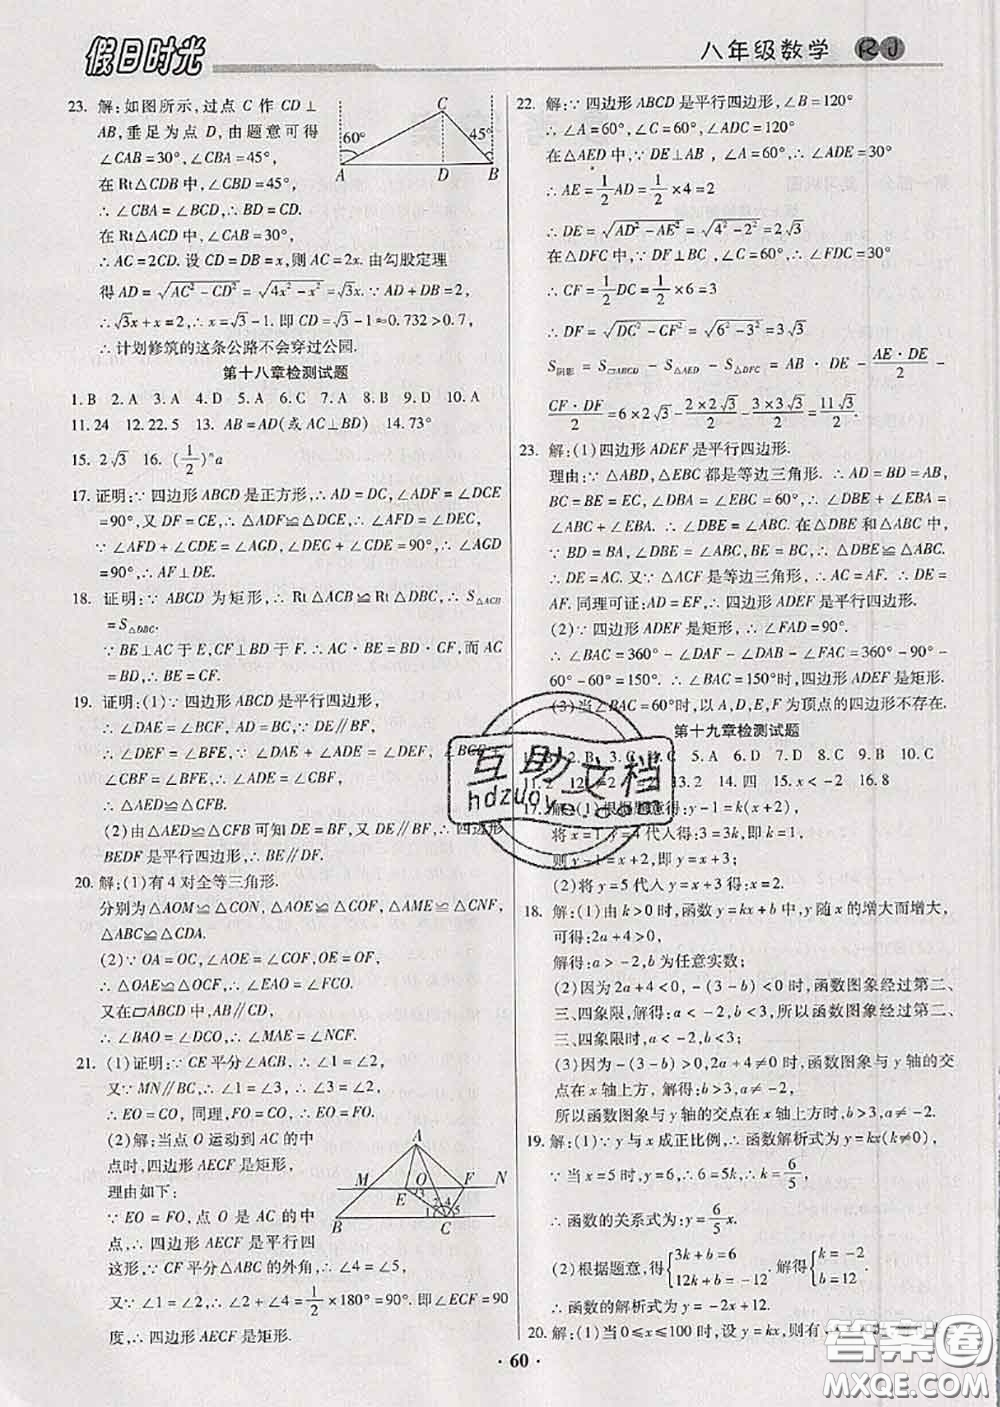 假日时光
八年级数学 RJ
23. 解:如图所示,过点 C 作 CD⊥
AB,垂足为点 D,由题意可得
∠CAB=30°,∠CBA=45°,
在 Rt△CDB 中,∠CBD=45°,
∴∠CBA=∠BCD,∴BD=CD.
在 Rt△ACD 中,∠CAB=30°,
∴AC=2CD. 设 CD=DB=x,则 AC=2x. 由勾股定理
得 AD=√(AC²-CD²)=√(4x²-x²)=√3x. ∵AD+DB=2,
∴√3x+x=2,∴x=√3-1. 即 CD=√3-1≈0.732>0.7,
∴计划修筑的这条公路不会穿过公园.
60° C 45°
A D B
第十八章检测试题
1.B 2.A 3.A 4.D 5.A 6.C 7.A 8.D 9.D 10.A
11.24 12.22.5 13. AB=AD(或 AC⊥BD) 14.73°
15. 2√3 16. (1/2)ⁿa
17. 证明:∵四边形 ABCD 是正方形,∴AD=DC,∠ADF=∠DCE
=90°,又 DF=CE,∴△ADF≌△DCE,∴∠AFD=∠DEC,
∵∠AFD+∠CDE=∠AGD,∠DEC+∠CDE=90°,∴∠AGD
=90°,∴AF⊥DE.
18. 证明:∵ABCD 为矩形,∴Rt△ACB≌Rt△DBC,∴S△ACB
=S△DBC.
∵BE⊥AC 于 E,CF⊥BD 于 F,∴AC·BE=BD·CF,而 AC
=BD,∴BE=CF.
19. 证明:(1)∵四边形 ABCD 是平行四边形,
∴∠DAE=∠BCF,∵四边形 BEDF 是平行四边形,
∴∠DEF=∠BFE,∴∠AED=∠CFB,
∴△AED≌△CFB;
(2)由△AED≌△CFB 可知 DE=BF,又∵DE∥BF,∴四边形
BEDF 是平行四边形,∴BE∥DF.
20. 解:(1)有 4 对全等三角形.
分别为△AOM≌△CON,△AOE≌△COF,△AME≌△CNF,
△ABC≌△CDA.
(2)∵OA=OC,∠AOE=∠COF,OE=OF,
∴△OAE≌△OCF,∴∠EAO=∠FCO.
又∵在▱ABCD 中,AB∥CD,
∴∠BAO=∠DCO,∴∠EAM=∠NCF.
21. (1)证明:∵CE 平分∠ACB,∴∠1=∠2,
又∵MN∥BC,∴∠1=∠3,∴∠2=∠3,
∴EO=CO,同理,FO=CO,∴EO=FO.
(2)解:当点 O 运动到 AC 的中
点时,四边形 AECF 是矩形,
理由如下:
∵EO=FO,点 O 是 AC 的中
点,∴四边形 AECF 是平行四
边形,∵CF 平分△ABC 的外角,∴∠4=∠5,
又∵∠1=∠2,∴∠2+∠4=1/2×180°=90°. 即∠ECF=90
度,∴四边形 AECF 是矩形.
A
M O F N
E 3
2 4
1 5
B C
22. 解:∵四边形 ABCD 是平行四边形,∠B=120°
∴∠A=60°,∠C=60°,∠ADC=120°
在△AED 中,∵DE⊥AB,∠A=60°,∴∠ADE=30°
∴AE=1/2AD=1/2×4=2
∴DE=√(AD²-AE²)=√(4²-2²)=2√3
在△DFC 中,∵DF⊥BC,∠C=60°,∴∠FDC=30°
∴CF=1/2DC=1/2×6=3
∴DF=√(DC²-CF²)=√(6²-3²)=3√3
S阴影=S▱ABCD-S△AED-S△DFC=AB·DE-(AE·DE)/2-
(CF·DF)/2=6×2√3-(2×2√3)/2-(3×3√3)/2=11√3/2
23. 解:(1)四边形 ADEF 是平行四边形.
理由:∵△ABD,△EBC 都是等边三角形. ∴AD=BD=AB,
BC=BE=EC,∠DBA=∠EBC=60°,∴∠DBE+∠EBA=
∠ABC+∠EBA. ∴∠DBE=∠ABC. 在△DBE 和△ABC 中,
∵BD=BA,∠DBE=∠ABC,BE=BC,∴△DBE≌△ABC.
∴DE=AC. 又∵△ACF 是等边三角形,∴AC=AF. ∴DE=
AF. 同理可证:AD=EF,∴四边形 ADEF 是平行四边形.
(2)∵四边形 ADEF 是矩形,∴∠FAD=90°.
∴∠BAC=360°-∠DAF-∠DAB-∠FAC=360°-90°-
60°-60°=150°. ∴∠BAC=150°时,四边形 ADEF 是矩形.
(3)当∠BAC=60°时,以 A、D、E、F 为顶点的四边形不存在.
第十九章检测试题
2. B 3. C 4. C 5. A 6. D 7. D 8. C 9. B 10. C
11. 2 13. 2 14. 四 15. x<-2 16. 8
17. 解:(1)根据题意得:y-1=k(x+2),
将 x=1,y=4 代入得:3=3k,即 k=1,
则 y-1=x+2,即 y=x+3;
(2)将 y=5 代入 y=x+3 得:x=2.
18. 解:(1)由 k>0 时,函数 y=kx+b 中,y 随 x 的增大而增大,
可得:2a+4>0,
解得:a>-2,b 为任意实数;
(2)因为 2a+4<0,-(3-b)<0 时,函数图象经过第二、
三、四象限,解得:a<-2,b<3;所以函数图象经过第二、
三、四象限时,a<-2,b<3;
(3)因为-(3-b)>0,2a+4≠0 时,函数图象与 y 轴的交
点在 x 轴上方,解得:b>3,a≠-2,
所以函数图象与 y 轴的交点在 x 轴上方时,b>3,a≠-2.
19. 解:(1)∵y 与 x 成正比例,∴函数解析式为 y=kx(k≠0),
∵当 x=5 时,y=6,∴6=5k,∴k=6/5,
∴函数的关系式为:y=6/5x.
(2)根据题意,得{3k+b=6 12k+b=-12. 解得{k=-2 b=12
∴函数的解析式为 y=-2x+12.
20. 解:(1)当 0≤x≤100 时,设 y=kx,则有
·60·
互助文档
hdzuoye.com
答案圈
MXQE.COM